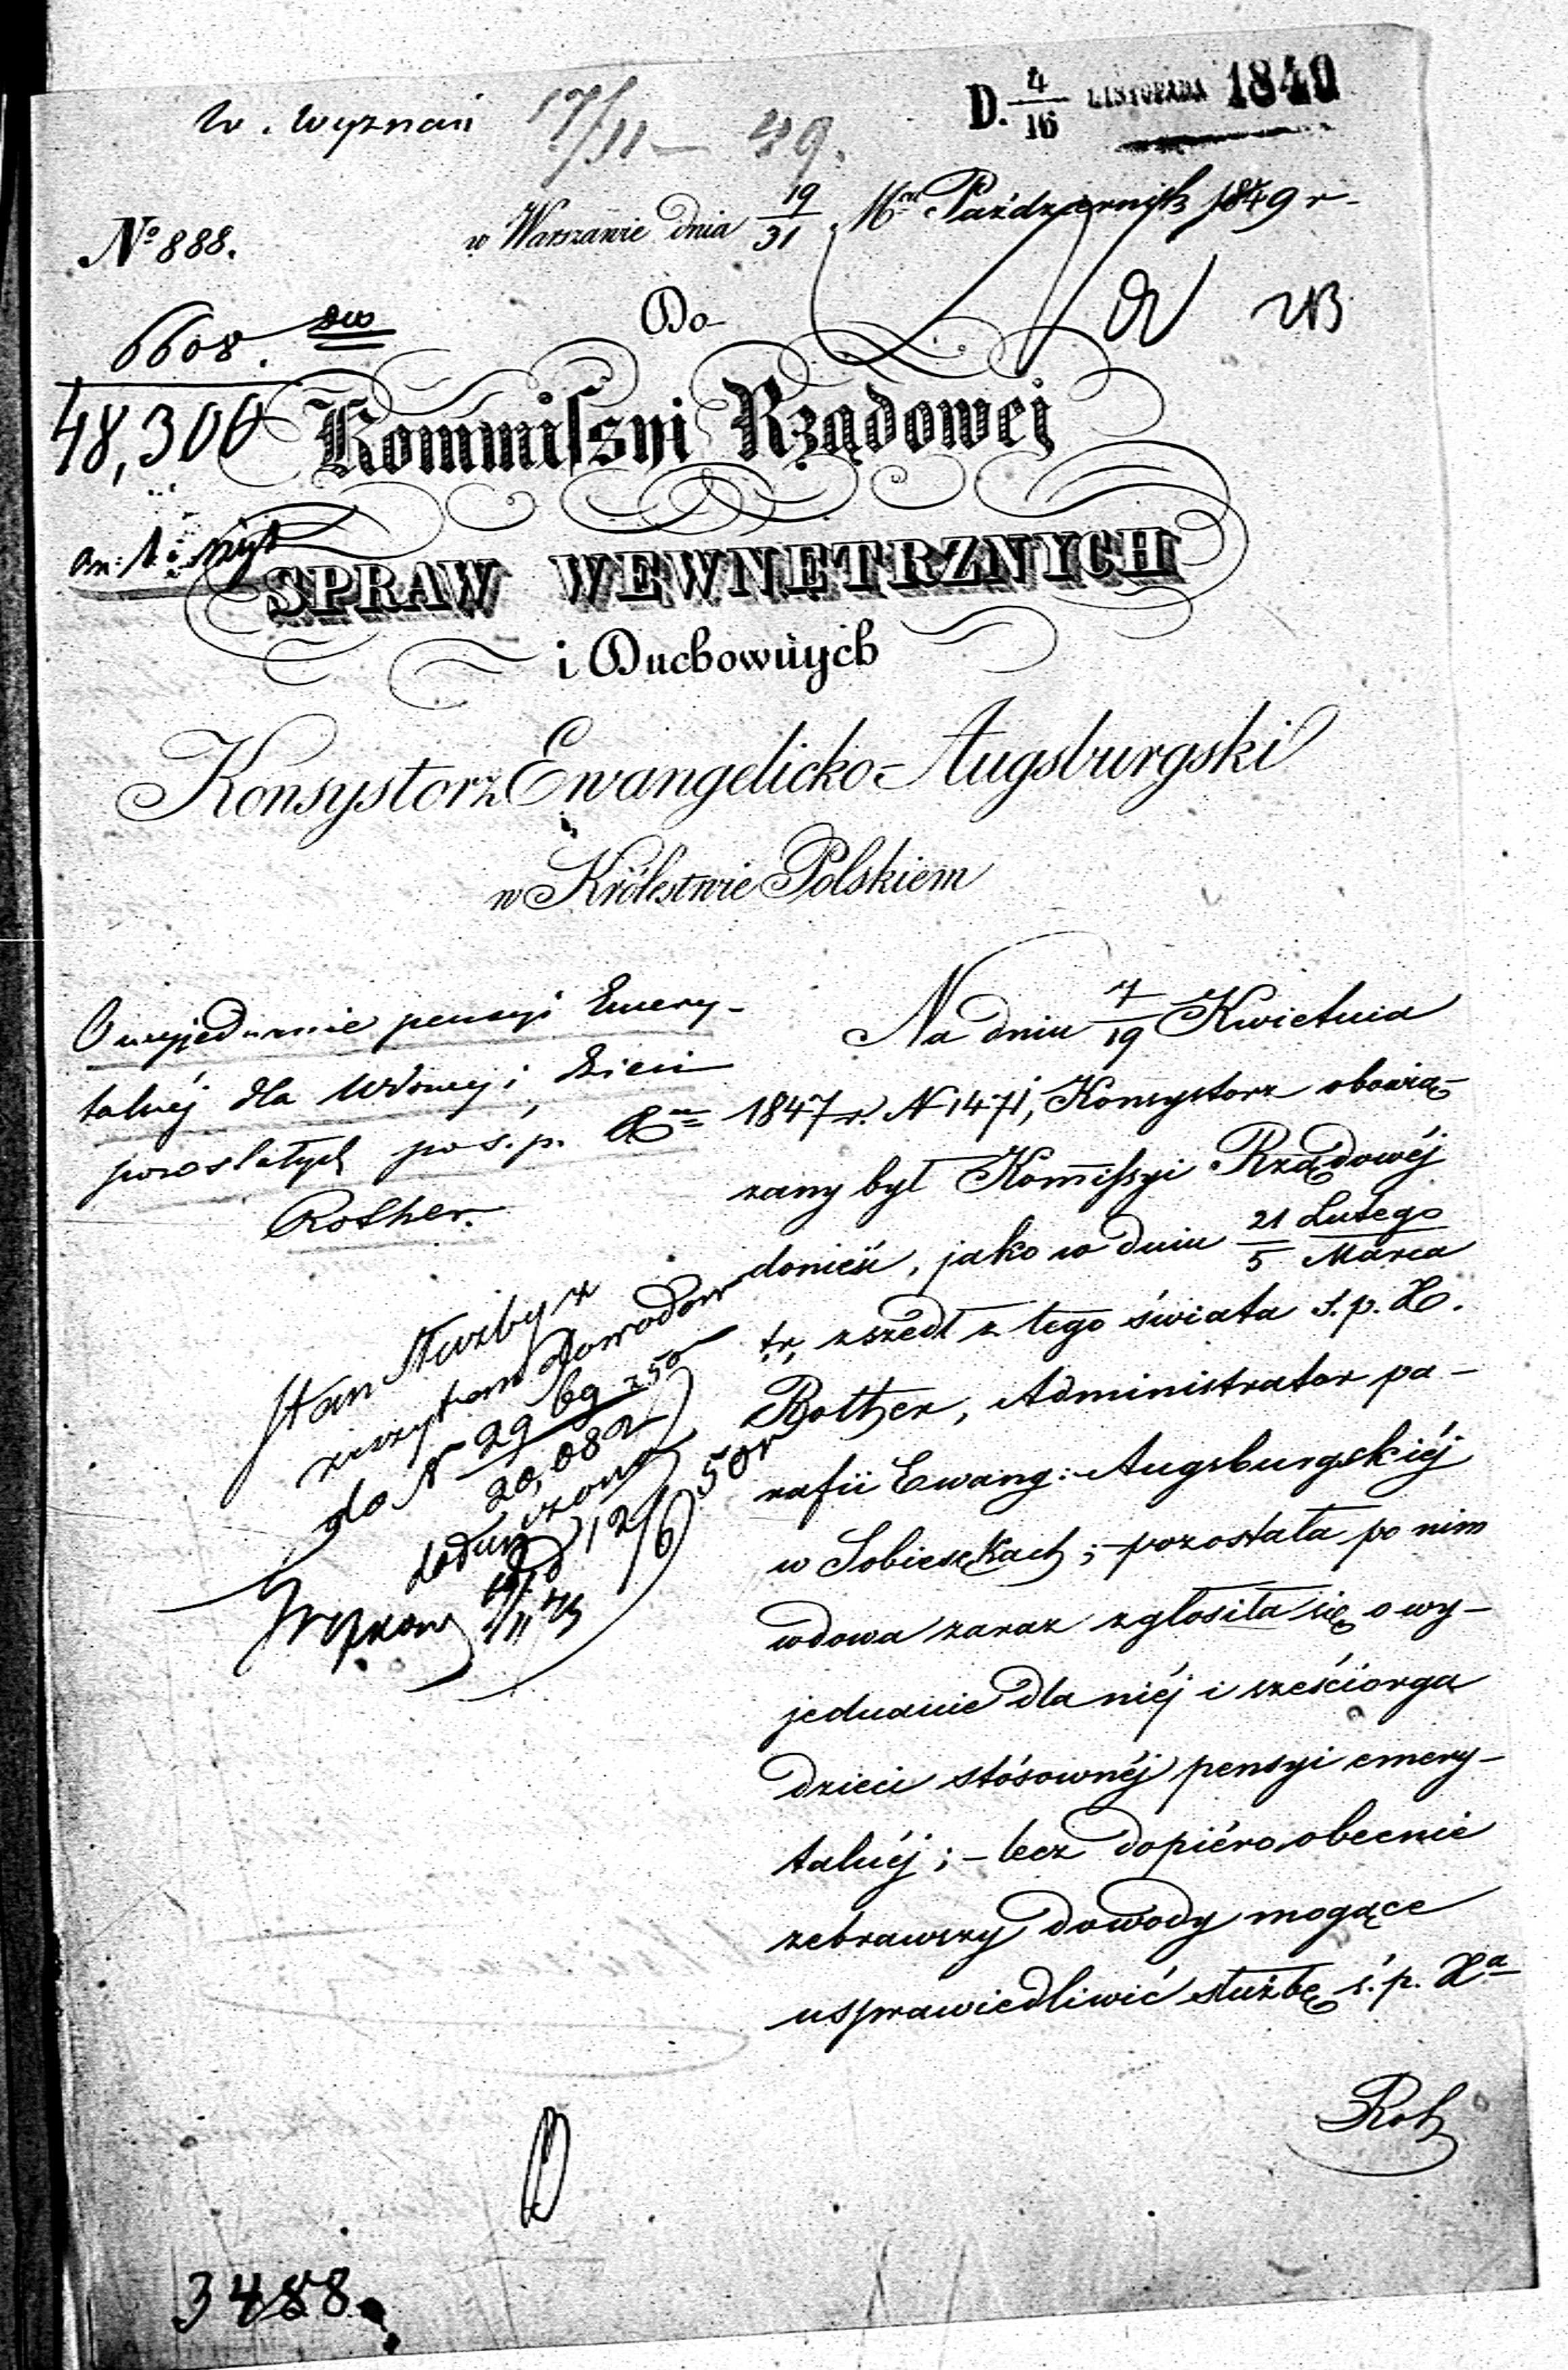 W. Wyznań 17/11 49.
D. 4/16 LISTOPADA 1849
w Warszawie dnia 19/31 Października 1849 r.
No 888.
6608.
48,306
Do
Kommissyi Rządowej
SPRAW WEWNĘTRZNYCH
i Duchownych
Konsystorz Ewangelicko-Augsburgski
w Królestwie Polskiem
O wyjednanie pensyi Emery-
talnéj dla Wdowy i Dzieci
pozostałych po ś. p. Xu
Rother.
Na dniu 7/19 Kwietnia
1847 r. N 1471, Konsystorz obowią-
zany był Komissyi Rządowéj
donieść, jako w dniu 21 Lutego / 5 Marca
t. r. zszedł z tego świata ś. p. X.
Rother, Administrator pa-
rafii Ewang: Augsburgskiéj
w Sobiesękach; - pozostała po nim
wdowa zaraz zgłosiła się o wy-
jednanie dla niéj i sześciorga
dzieci stósownéj pensyi emery-
talnéj; - lecz dopiéro obecnie
zebrawszy dowody mogące
usprawiedliwić służbę ś. p. Xa
Roth
Stan Służby z
dowodów
do N 29
20,082
3488.